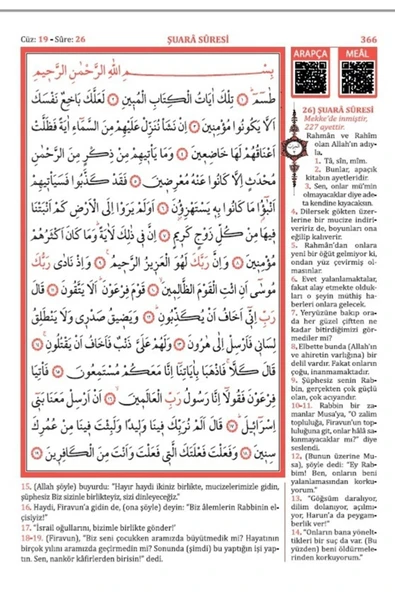 Cüz: 19 • Sûre: 26
ŞUARÂ SÛRESİ
366
بِسْمِ اللّٰهِ الرَّحْمٰنِ الرَّحٖيمِ
طٰسٓمٓ ﴿١﴾ تِلْكَ اٰيَاتُ الْكِتَابِ الْمُبٖينِ ﴿٢﴾ لَعَلَّكَ بَاخِعٌ نَفْسَكَ
اَلَّا يَكُونُوا مُؤْمِنٖينَ ﴿٣﴾ اِنْ نَشَأْ نُنَزِّلْ عَلَيْهِمْ مِنَ السَّمَٓاءِ اٰيَةً فَظَلَّتْ
اَعْنَاقُهُمْ لَهَا خَاضِعٖينَ ﴿٤﴾ وَمَا يَأْتٖيهِمْ مِنْ ذِكْرٍ مِنَ الرَّحْمٰنِ
مُحْدَثٍ اِلَّا كَانُوا عَنْهُ مُعْرِضٖينَ ﴿٥﴾ فَقَدْ كَذَّبُوا فَسَيَأْتٖيهِمْ
اَنْبٰٓؤُا مَا كَانُوا بِهٖ يَسْتَهْزِؤُنَ ﴿٦﴾ اَوَلَمْ يَرَوْا اِلَى الْاَرْضِ كَمْ اَنْبَتْنَا
فٖيهَا مِنْ كُلِّ زَوْجٍ كَرٖيمٍ ﴿٧﴾ اِنَّ فٖي ذٰلِكَ لَاٰيَةً وَمَا كَانَ اَكْثَرُهُمْ
مُؤْمِنٖينَ ﴿٨﴾ وَاِنَّ رَبَّكَ لَهُوَ الْعَزٖيزُ الرَّحٖيمُ ﴿٩﴾ وَاِذْ نَادٰى رَبُّكَ
مُوسٰٓى اَنِ ائْتِ الْقَوْمَ الظَّالِمٖينَ ﴿١٠﴾ قَوْمَ فِرْعَوْنَ اَلَا يَتَّقُونَ ﴿١١﴾ قَالَ
رَبِّ اِنّٖٓي اَخَافُ اَنْ يُكَذِّبُونِ ﴿١٢﴾ وَيَضٖيقُ صَدْرٖي وَلَا يَنْطَلِقُ
لِسَانٖي فَاَرْسِلْ اِلٰى هٰرُونَ ﴿١٣﴾ وَلَهُمْ عَلَيَّ ذَنْبٌ فَاَخَافُ اَنْ يَقْتُلُونِ ﴿١٤﴾
قَالَ كَلَّا فَاذْهَبَا بِاٰيَاتِنَٓا اِنَّا مَعَكُمْ مُسْتَمِعُونَ ﴿١٥﴾ فَأْتِيَا
فِرْعَوْنَ فَقُولَٓا اِنَّا رَسُولُ رَبِّ الْعَالَمٖينَ ﴿١٦﴾ اَنْ اَرْسِلْ مَعَنَا بَنٖٓي
اِسْرَٓائٖلَ ﴿١٧﴾ قَالَ اَلَمْ نُرَبِّكَ فٖينَا وَلٖيدًا وَلَبِثْتَ فٖينَا مِنْ عُمُرِكَ
سِنٖينَ ﴿١٨﴾ وَفَعَلْتَ فَعْلَتَكَ الَّتٖي فَعَلْتَ وَاَنْتَ مِنَ الْكَافِرٖينَ ﴿١٩﴾
ARAPÇA
MEÂL
26) ŞUARÂ SÛRESİ
Mekke'de inmiştir,
227 ayettir.
Rahmân ve Rahîm
olan Allah'ın adıy-
la,
1. Tâ, sîn, mîm.
2. Bunlar, apaçık
kitabın ayetleridir.
3. Sen, onlar mü'min
olmayacaklar diye ade-
ta kendine kıyacaksın.
4. Dilersek gökten üzer-
lerine bir mucize indiri-
veririz de, boyunları ona
eğilip kalıverir.
5. Rahmân'dan onlara
yeni bir öğüt gelmiyor ki,
ondan yüz çevirmiş ol-
masınlar.
6. Evet yalanlamaktalar,
fakat alay etmekte olduk-
ları o şeyin müthiş ha-
berleri onlara gelecek.
7. Yeryüzüne bakıp ora-
da her güzel çiftten ne
kadar bitirdiğimizi gör-
mediler mi?
8. Elbette bunda (Allah'ın
ve ahiretin varlığına) bir
delil vardır. Fakat onların
çoğu, inanmamaktadır.
9. Şüphesiz senin Rab-
bin, gerçekten çok güçlü
olan, çok acıyandır.
10-11. Rabbin bir za-
manlar Musa'ya, "O zalim
topluluğa, Firavun'un top-
luluğuna git, onlar hâlâ sa-
kınmayacaklar mı?" diye
seslendi.
12. (Bunun üzerine Mu-
sa), şöyle dedi: "Ey Rab-
bim! Ben, onların beni
yalanlamasından korku-
yorum."
13. "Göğsüm daralıyor,
dilim dolanıyor, açılmı-
yor, Harun'a da peygam-
berlik ver!"
14. "Onların bana yönelt-
tikleri bir suç da var. (Bu
yüzden) beni öldürmele-
rinden korkuyorum."
15. (Allah şöyle) buyurdu: "Hayır haydi ikiniz birlikte, mucizelerimizle gidin,
şüphesiz Biz sizinle birlikteyiz, sizi dinleyeceğiz."
16. Haydi, Firavun'a gidin de, (ona şöyle) deyin: "Biz âlemlerin Rabbinin el-
çisiyiz!"
17. "İsrail oğullarını, bizimle birlikte gönder!"
18-19. (Firavun), "Biz seni çocukken aramızda büyütmedik mi? Hayatının
birçok yılını aramızda geçirmedin mi? Sonunda (şimdi) bu yaptığın işi yap-
tın. Sen, nankör kâfirlerden birisin!" dedi.